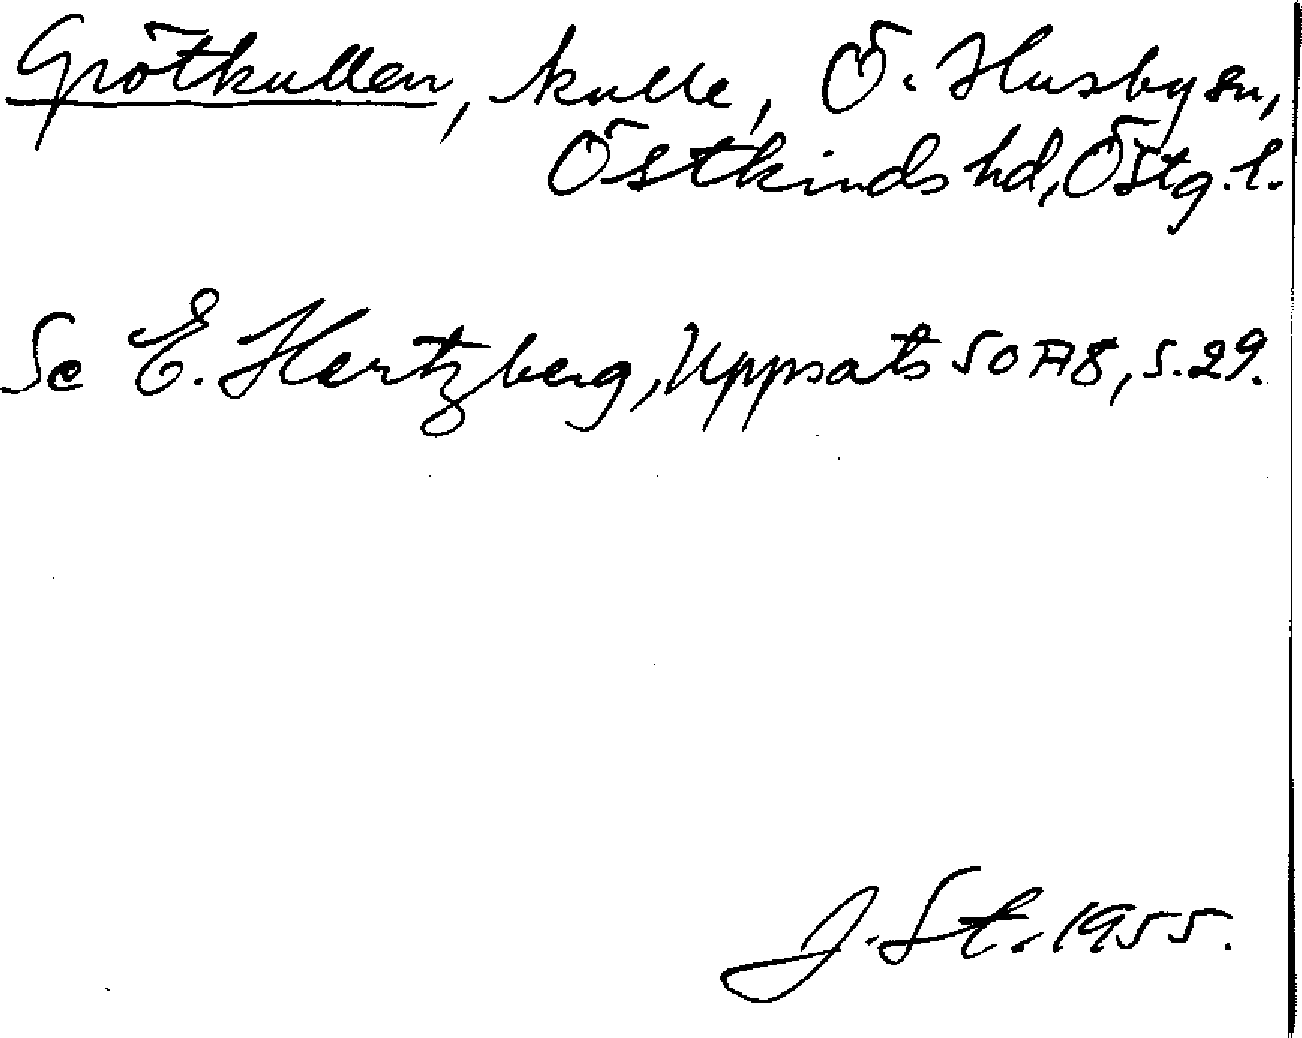 Grötkullen, kulle, Ö. Husby sn,
Östkinds hd, Östg. l.
Se E. Hertzberg, Uppsats SOA8, s. 29.
J. St. 1955.